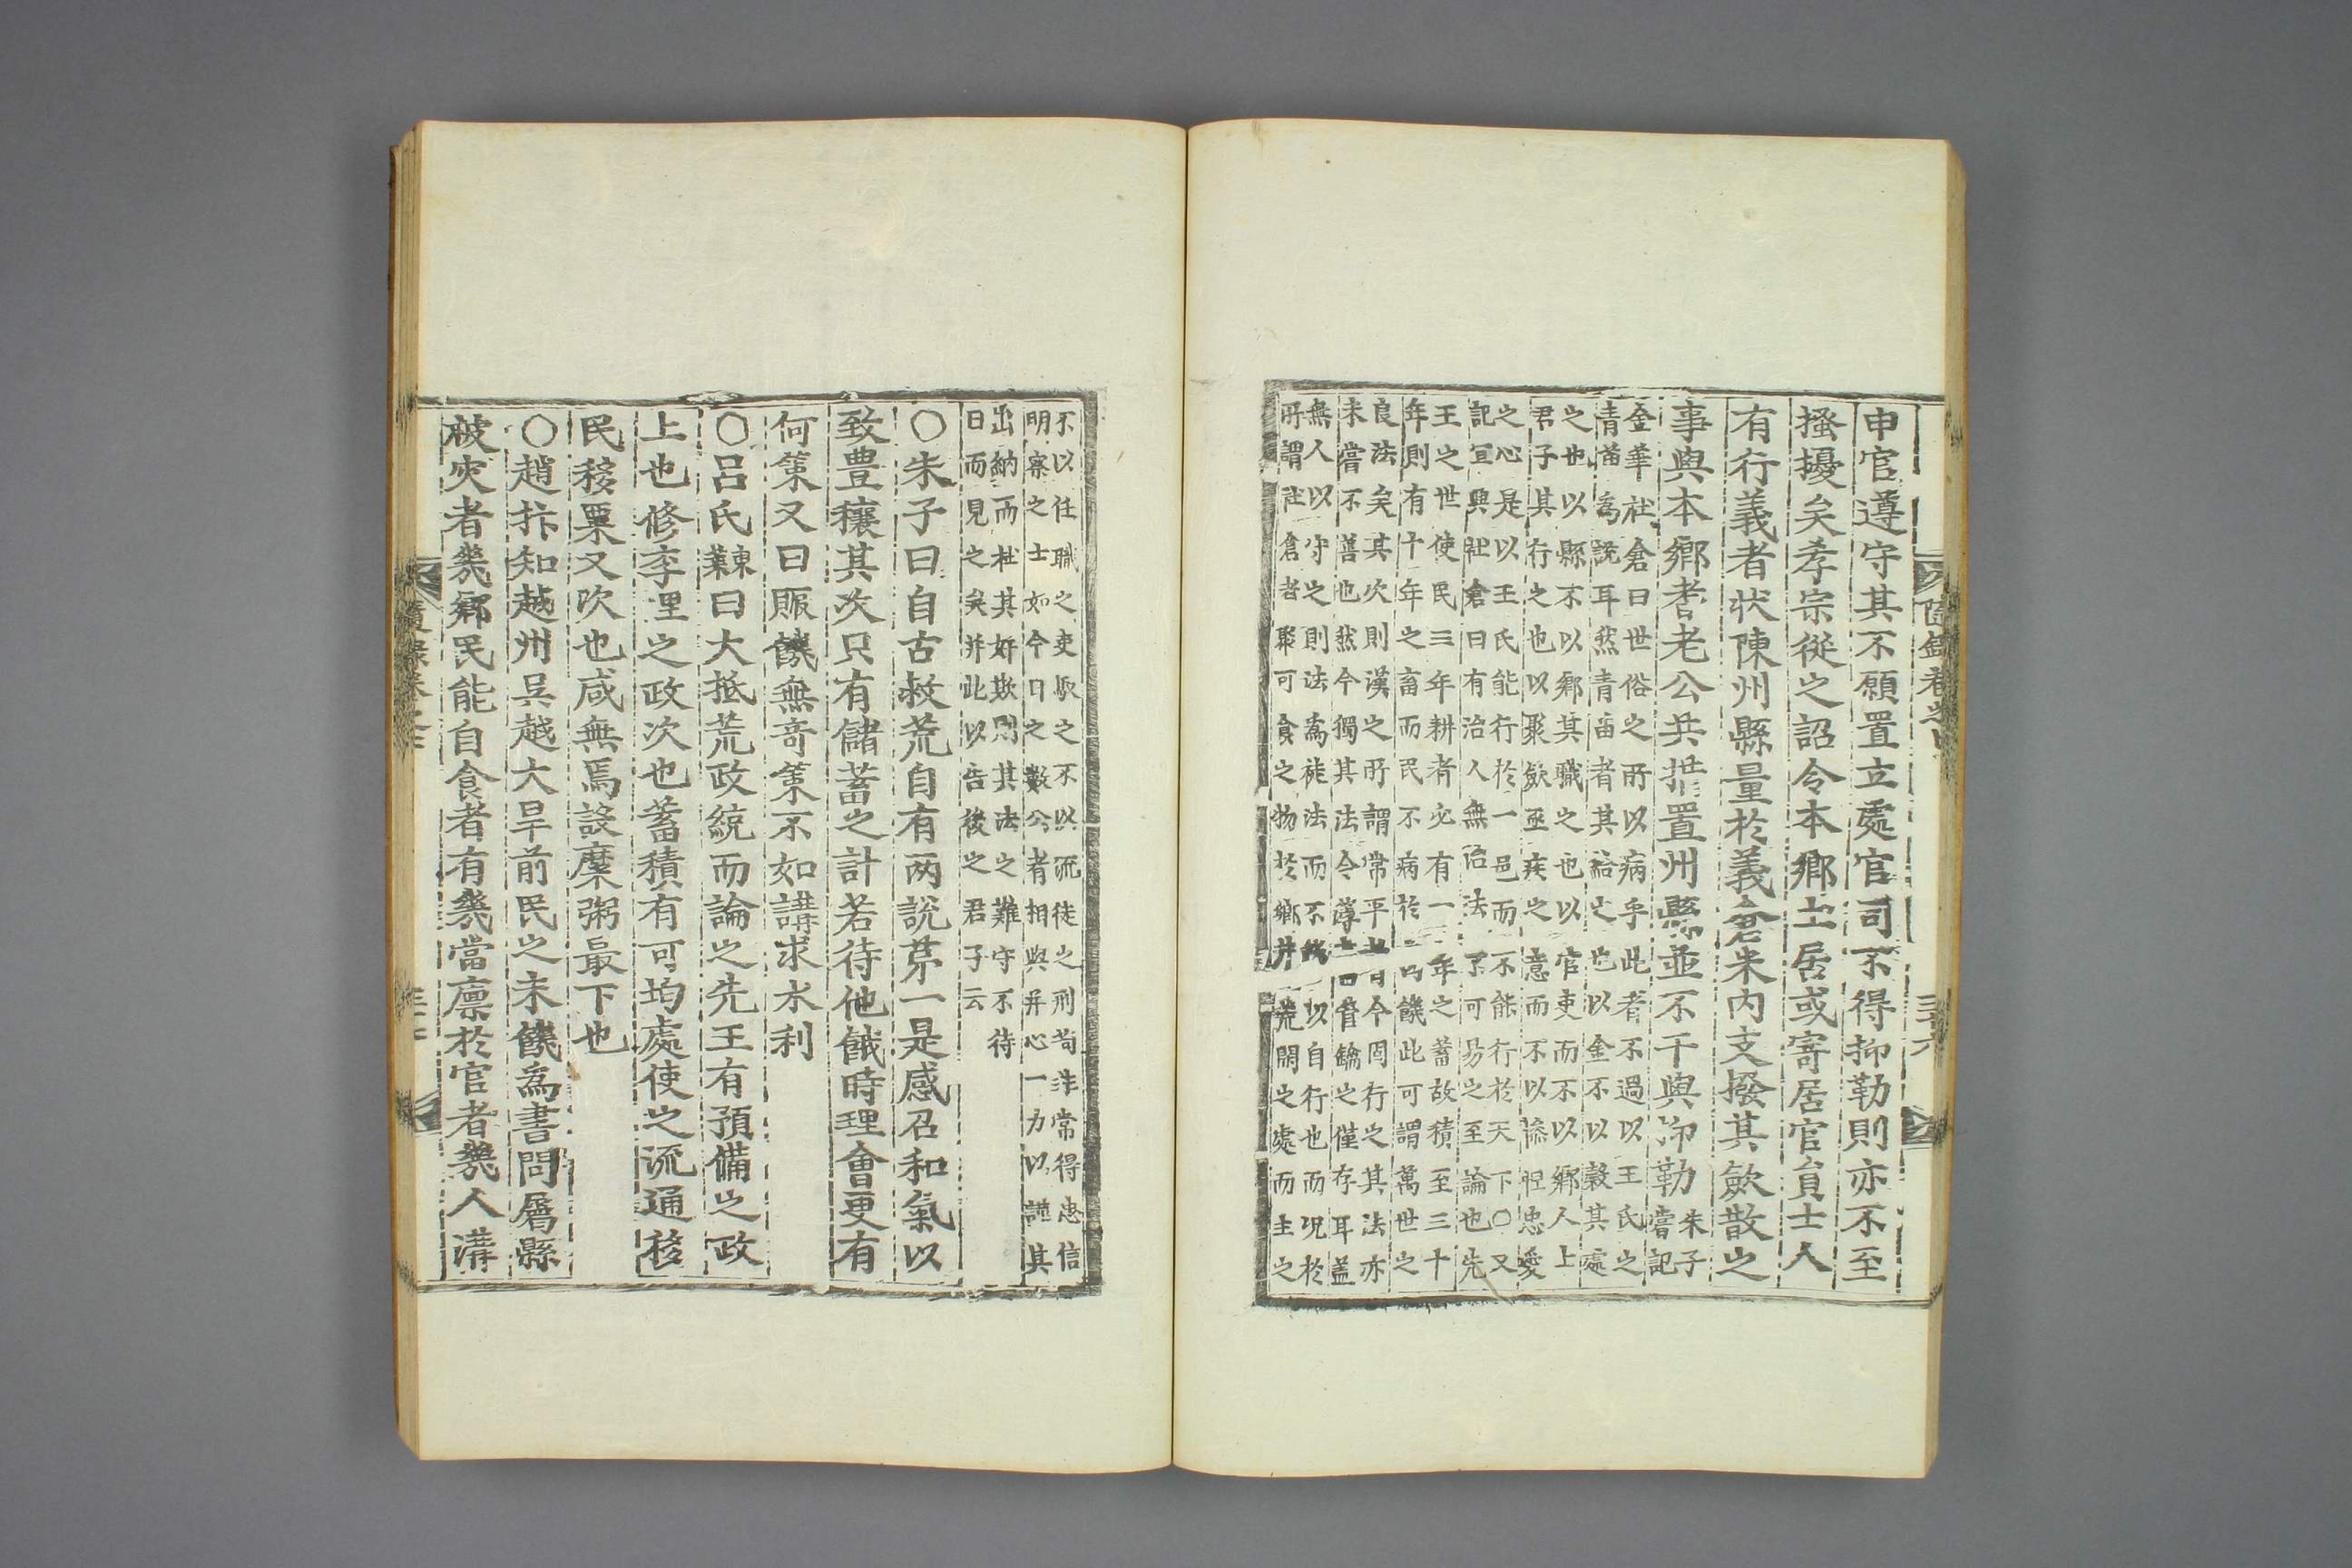 申官遵守其不願置立處官司不得抑勒則亦不至
搔擾矣孝宗從之詔令本鄕土居或寄居官員士人
有行義者狀陳州縣量於義倉米內支撥其歛散之
事與本鄕耆老公共措置州縣並不干與抑勒 朱子
嘗記
金華社倉曰世俗之所以病乎此者不過以王氏之
靑苗爲說耳然靑苗者其給之也以金不以穀其處
之也以縣不以鄕其職之也以官吏而不以鄕人上
君子其行之也以聚歛亟疾之意而不以慘怛忠愛
之心是以王氏能行於一邑而不能行於天下○又
記宜興社倉曰有治人無治法 可易之至論也先
王之世使民三年耕者必有一年之蓄故積至三十
年則有十年之畜而民不病於 饑此可謂萬世之
良法矣其次則漢之所謂常平 今固行之其法亦
未嘗不善也然今獨其法令 鑰之僅存耳蓋
無人以守之則法爲徒法而不 以自行也而况於
所謂社倉者聚可食之物於鄕井荒閑之處而主之
不以任職之吏馭之不以流徒之刑苟非常得忠信
明察之士如今日之數公者相與并心一力以謹其
出納而杜其奸欺則其法之難守不待
日而見之矣并此以告後之君子云
○朱子曰自古救荒自有兩說苐一是感召和氣以
致豊穰其次只有儲蓄之計若待他餓時理會更有
何策又曰賑饑無奇策不如講求水利
○呂氏東萊曰大抵荒政統而論之先王有預備之政
上也修李悝之政次也蓄積有可均處使之流通移
民移粟又次也咸無焉設糜粥最下也
○趙抃知越州吳越大旱前民之未饑爲書問屬縣
被灾者幾鄕民能自食者有幾當廩於官者幾人溝